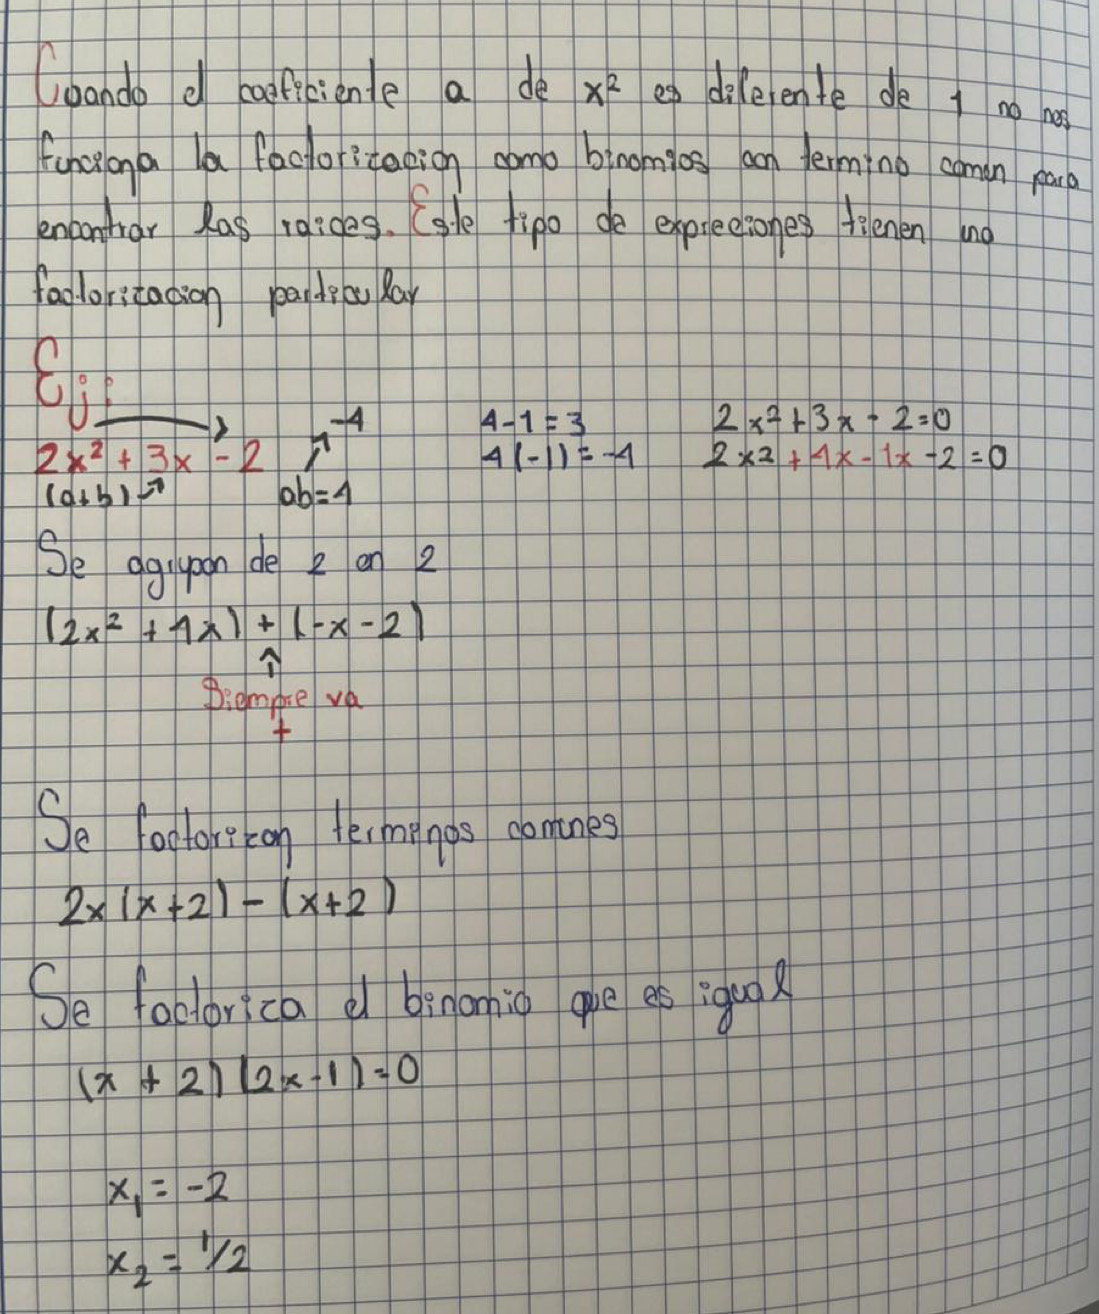 Cuando el coeficiente a de x² es diferente de 1 no nos
funciona la factorizacion como binomios con termino comun para
encontrar las raices. Este tipo de expreciones tienen una
factorizacion particular
Ej:
-4 4-1=3 2x²+3x-2=0
2x² + 3x - 2 4(-1)=-4 2x2 +4x-1x-2=0
(a+b) ab=4
Se agrupan de 2 en 2
(2x² + 4x) + (-x-2)
Siempre va
+
Se factorizan terminos comunes
2x(x+2)-(x+2)
Se factoriza el binomio que es igual
(x + 2)(2x-1)=0
x₁ = -2
x₂ = 1/2